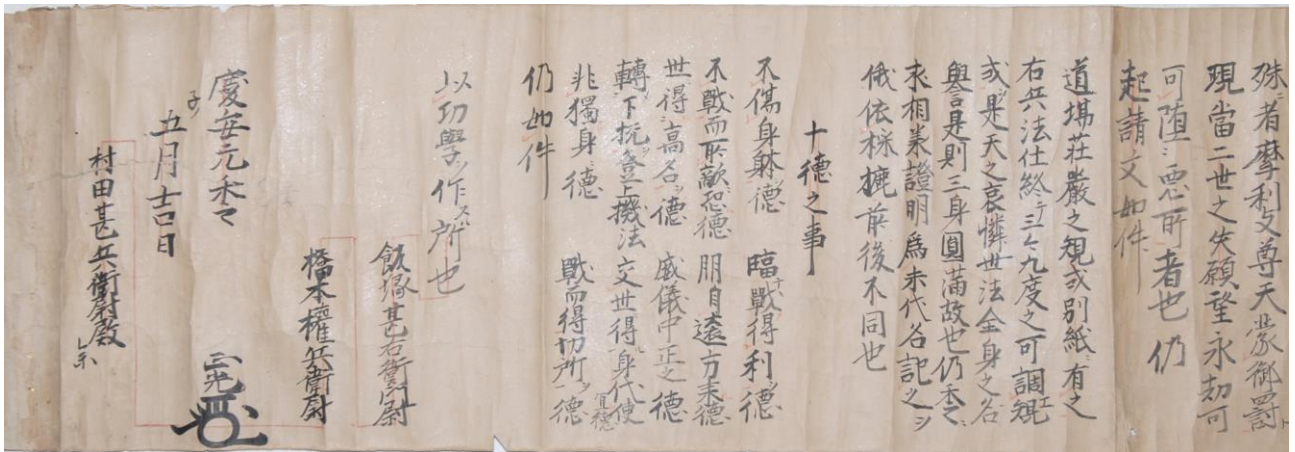 殊ニ者摩利支尊天蒙御罰
現當二世之失願望永劫可
可堕ニ悪所者也仍
起請文如件
道場荘厳之規式別紙ニ有之
右兵法仕終テ三々九度之可調規
式ヲ是天之哀憐世法全身之名
誉言是則三身圓満故也仍
求相業證明為末代名記之ヲ
俄依採擁前後不同也
十徳之事
不傷身躰ヲ徳 臨戦得利ヲ徳
不戦而取敵ヲ徳 朋自遠方来徳
世ニ得高名ヲ徳 威儀中正之徳
轉下 登上機法 交世得身代使
非獨身ニ徳 戦而得切所ヲ徳
仍如件
以切學ヲ作ス所也
飯塚甚右衛門尉
橋本權兵衛尉
慶安元
子
五月十一日
村田甚兵衛尉殿